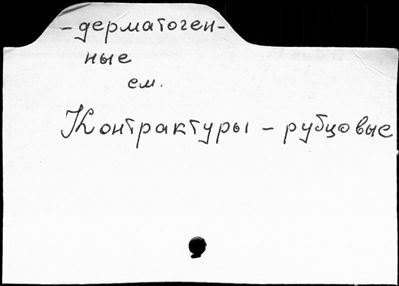 - дерматоген-
ные
см.
Контрактуры - рубцовые